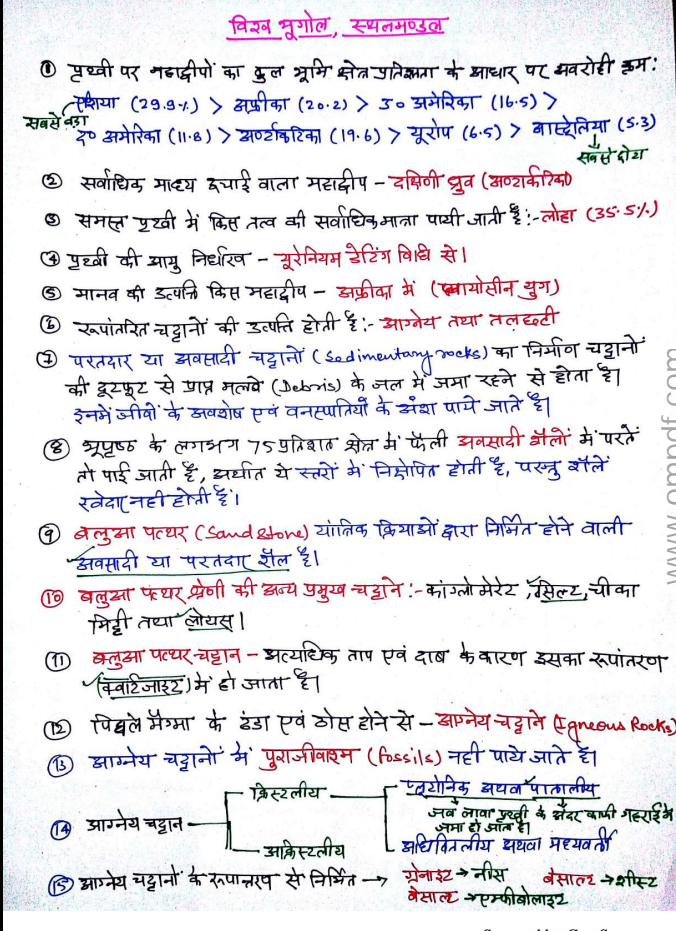 विश्व भूगोल, स्थलमण्डल
① पृथ्वी पर महाद्वीपों का कुल भूमि क्षेत्र प्रतिशतता के आधार पर अवरोही क्रम:
एशिया (29.9%) > अफ्रीका (20.2) > उ० अमेरिका (16.5) >
सबसे बड़ा
द० अमेरिका (11.8) > अण्टार्कटिका (19.6) > यूरोप (6.5) > आस्ट्रेलिया (5.3)
सबसे छोटा
② सर्वाधिक माध्य ऊचाई वाला महाद्वीप - दक्षिणी ध्रुव (अण्टार्कटिका)
③ समस्त पृथ्वी में किस तत्व की सर्वाधिक मात्रा पायी जाती है:- लोहा (35.5%)
④ पृथ्वी की आयु निर्धारण - यूरेनियम डेटिंग विधि से।
⑤ मानव की उत्पत्ति किस महाद्वीप - अफ्रीका में (प्लायोसीन युग)
⑥ रूपांतरित चट्टानों की उत्पत्ति होती है:- आग्नेय तथा तलछटी
⑦ परतदार या अवसादी चट्टानों (Sedimentary rocks) का निर्माण चट्टानों
की टूटफूट से प्राप्त मलवे (Debris) के जल में जमा रहने से होता है।
इनमें जीवों के अवशेष एवं वनस्पतियों के अंश पाये जाते है।
⑧ भूपृष्ठ के लगभग 75 प्रतिशत क्षेत्र में फैली अवसादी शैलों में परतें
तो पाई जाती है, अर्थात ये स्तरों में निक्षेपित होती है, परन्तु शैलें
रवेदार नही होती है।
⑨ बलुआ पत्थर (Sand Stone) यांत्रिक क्रियाओं द्वारा निर्मित होने वाली
अवसादी या परतदार शैल है।
⑩ बलुआ पत्थर श्रेणी की अन्य प्रमुख चट्टाने :- कांग्लोमेरेट, सिल्ट, चीका
मिट्टी तथा लोयस।
⑪ बलुआ पत्थर चट्टान - अत्यधिक ताप एवं दाब के कारण इसका रूपांतरण
(क्वार्टजाइट) में हो जाता है।
⑫ पिघले मैग्मा के ठंडा एवं ठोस होने से - आग्नेय चट्टाने (Igneous Rocks)
⑬ आग्नेय चट्टानों में पुराजीवाश्म (fossils) नही पाये जाते है।
क्रिस्टलीय
प्लूटोनिक अथवा पातालीय
जब लावा पृथ्वी के अंदर काफी गहराई में
जमा हो जाता है।
⑭ आग्नेय चट्टान
अधिवितलीय अथवा मध्यवर्ती
अक्रिस्टलीय
⑮ आग्नेय चट्टानों के रूपान्तरण से निर्मित → ग्रेनाइट → नीस बेसाल्ट → शीस्ट
बेसाल्ट → एम्फीबोलाइट